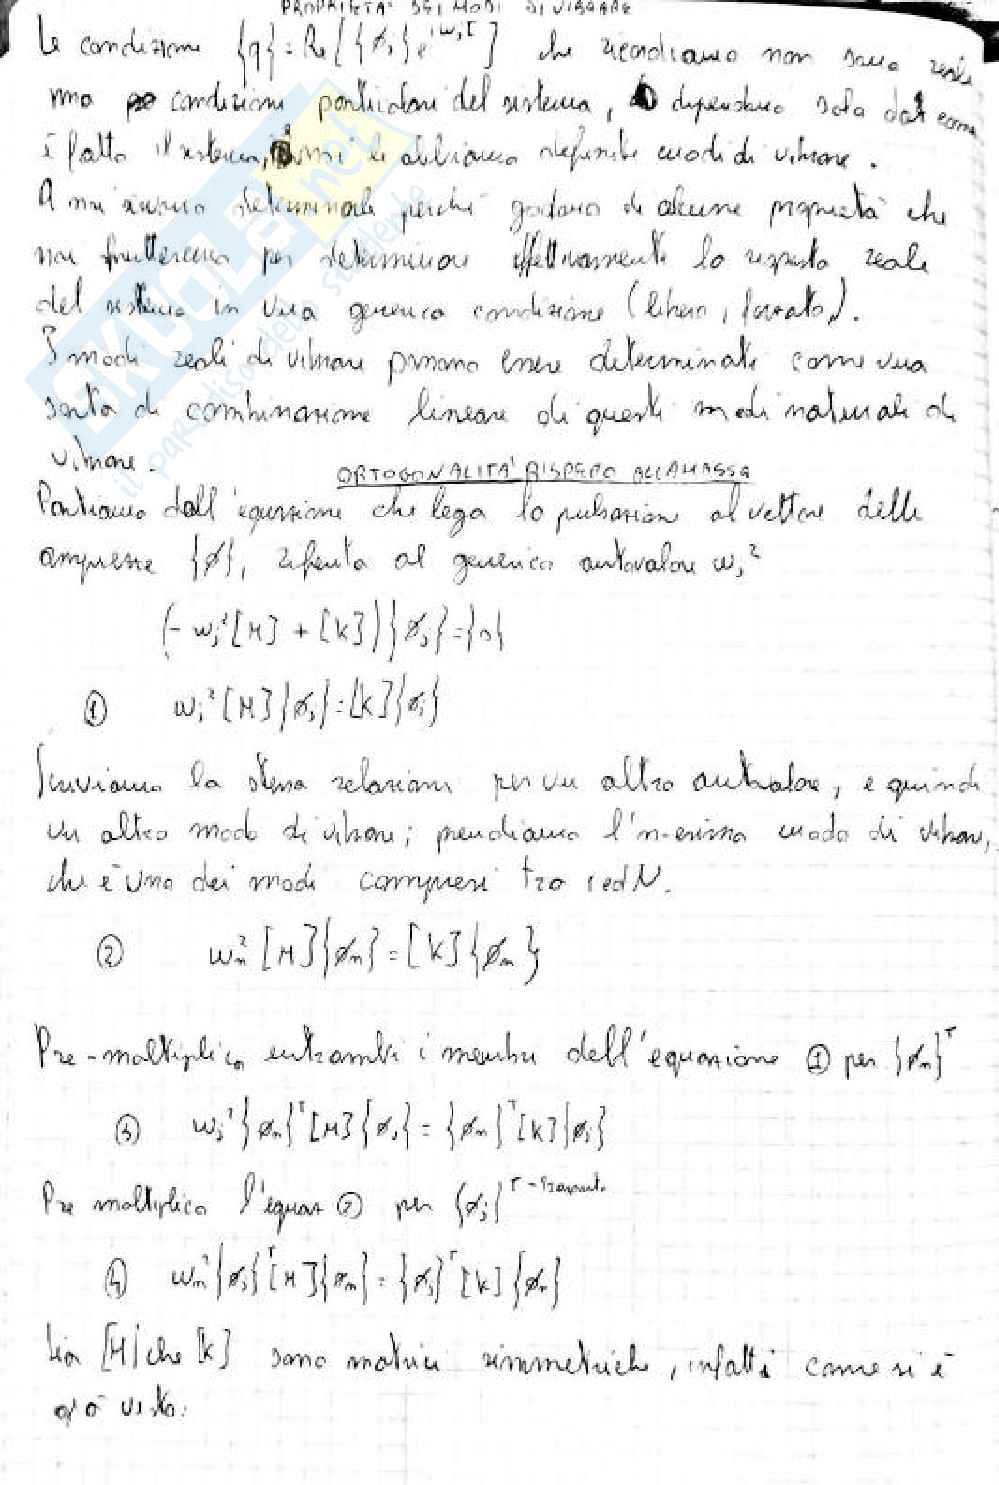 PROPRIETA' DEI MODI DI VIBRARE
Le condizioni {q} = Re[{ø_j}e^{iω_j t}] che ricordiamo non sono reali
ma condizioni particolari del sistema, dipendono solo dal come
è fatto il sistema, noi le abbiamo definite modi di vibrare.
A noi determinarle perché godono di alcune proprietà che
noi per determinare effettivamente la risposta reale
del sistema in una generica condizione (libero, forzato).
I modi reali di vibrare possono essere determinati come una
sorta di combinazione lineare di questi modi naturali di
vibrare.
ORTOGONALITA' RISPETTO ALLA MASSA
Partiamo dall'equazione che lega la pulsazione al vettore delle
ampiezze {ø}, riferita al generico autovalore ω_j²
(-ω_j²[M] + [K]){ø_j} = {0}
① ω_j²[M]{ø_j} = [K]{ø_j}
Scriviamo la stessa relazione per un altro autovalore, e quindi
un altro modo di vibrare; prendiamo l'n-esimo modo di vibrare,
che è uno dei modi compresi tra 1 ed N.
② ω_n²[M]{ø_n} = [K]{ø_n}
Pre-moltiplico entrambi i membri dell'equazione ① per {ø_n}^T
③ ω_j²{ø_n}^T[M]{ø_j} = {ø_n}^T[K]{ø_j}
Pre moltiplico l'equaz ② per {ø_j}^T
④ ω_n²{ø_j}^T[M]{ø_n} = {ø_j}^T[K]{ø_n}
Sia [M] che [K] sono matrici simmetriche, infatti come si è
già visto:
SKUOLA.net
il paradiso dello studente